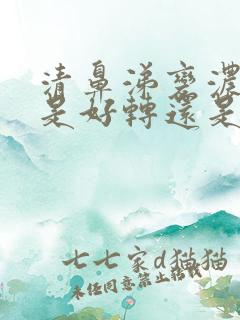 清鼻涕变浓
是好转还是
七七家d猫猫
未经同意禁止搬载